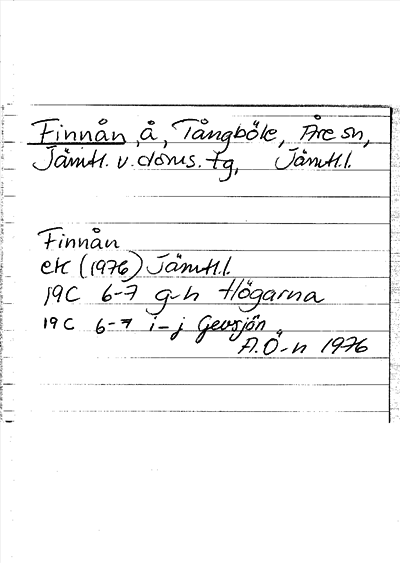 Finnån, å, Tångböle, Åre sn,
Jämtl. v. doms. tg, Jämtl.l.
Finnån
ek (1976) Jämtl.l.
19C 6-7 g-h Högarna
19C 6-7 i-j Gevsjön
A.Ö-n 1976